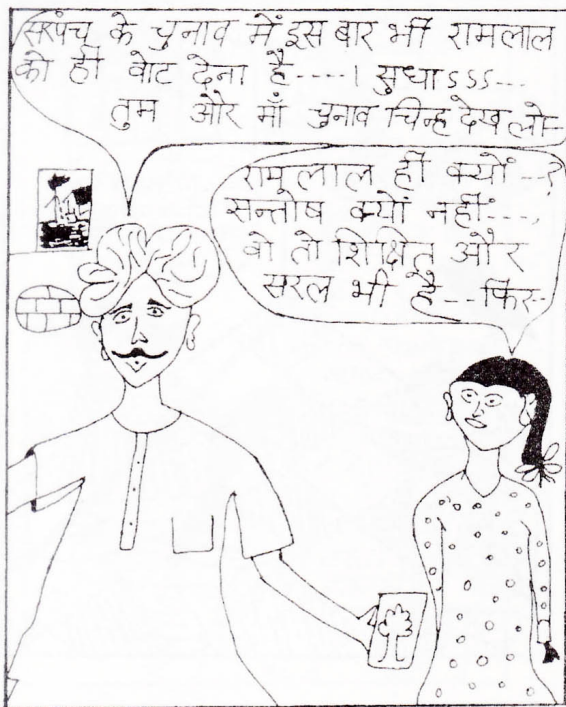 सरपंच के चुनाव में इस बार भी रामलाल
को ही वोट देना है----। सुधाsss---
तुम और माँ चुनाव चिन्ह देख लो-
रामलाल ही क्यों--?
सन्तोष क्यों नहीं---,
वो तो शिक्षित और
सरल भी है--फिर-